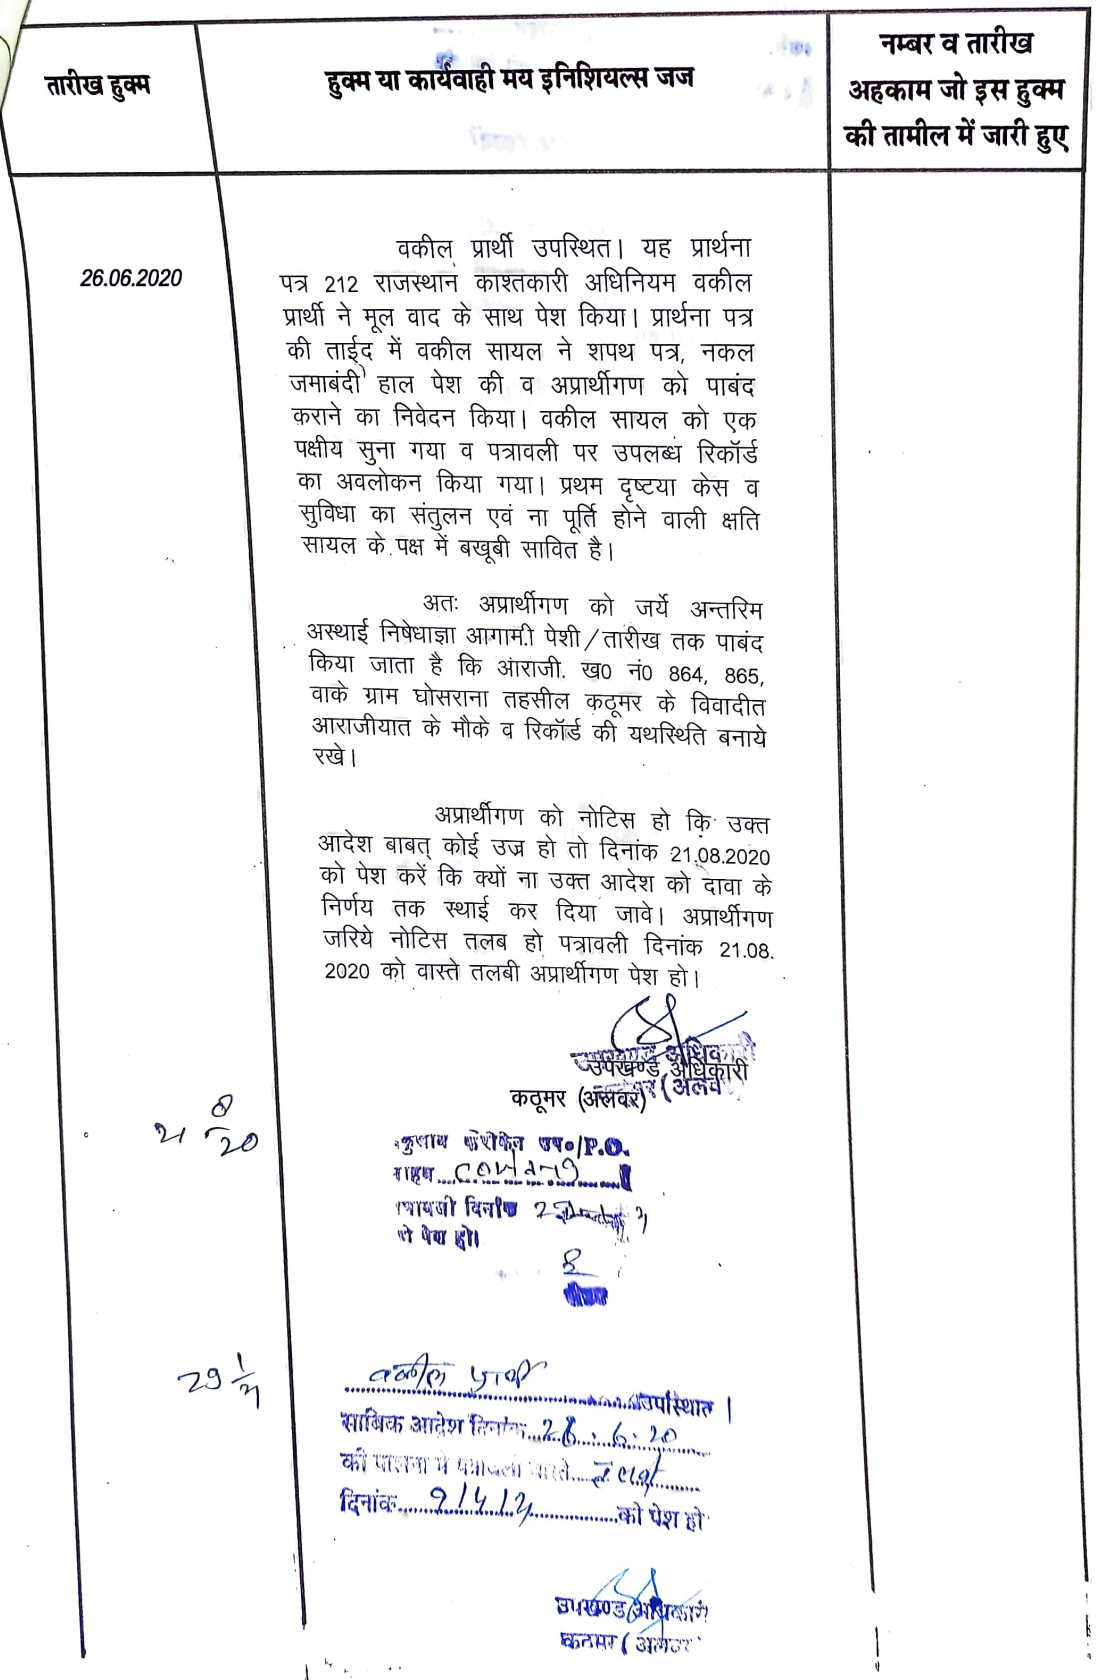 तारीख हुक्म
हुक्म या कार्यवाही मय इनिशियल्स जज
नम्बर व तारीख
अहकाम जो इस हुक्म
की तामील में जारी हुए
26.06.2020
वकील प्रार्थी उपस्थित। यह प्रार्थना
पत्र 212 राजस्थान काश्तकारी अधिनियम वकील
प्रार्थी ने मूल वाद के साथ पेश किया। प्रार्थना पत्र
की ताईद में वकील सायल ने शपथ पत्र, नकल
जमाबंदी हाल पेश की व अप्रार्थीगण को पाबंद
कराने का निवेदन किया। वकील सायल को एक
पक्षीय सुना गया व पत्रावली पर उपलब्ध रिकॉर्ड
का अवलोकन किया गया। प्रथम दृष्टया केस व
सुविधा का संतुलन एवं ना पूर्ति होने वाली क्षति
सायल के पक्ष में बखूबी सावित है।
अतः अप्रार्थीगण को जर्ये अन्तरिम
अस्थाई निषेधाज्ञा आगामी पेशी/तारीख तक पाबंद
किया जाता है कि आराजी. ख0 नं0 864, 865,
वाके ग्राम घोसराना तहसील कठूमर के विवादीत
आराजीयात के मौके व रिकॉर्ड की यथस्थिति बनाये
रखे।
अप्रार्थीगण को नोटिस हो कि उक्त
आदेश बाबत् कोई उज्र हो तो दिनांक 21.08.2020
को पेश करें कि क्यों ना उक्त आदेश को दावा के
निर्णय तक स्थाई कर दिया जावे। अप्रार्थीगण
जरिये नोटिस तलब हो पत्रावली दिनांक 21.08.
2020 को वास्ते तलबी अप्रार्थीगण पेश हो।
उपखण्ड अधिकारी
उपखण्ड अधिकारी
कठूमर (अलवर)
21 8/20
P.O.
दिनांक
पेश हो।
29 1/21
वकील प्रार्थी
उपस्थित।
साबिक आदेश दिनांक 26.6.20
की पालना में पत्रावली वास्ते
दिनांक 9/4/21 को पेश हो
उपखण्ड अधिकारी
कठूमर (अलवर